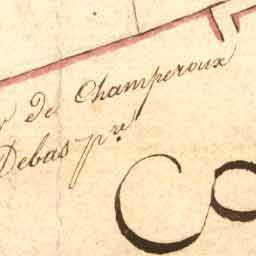 r de Champeroux
Debas pre.
Co